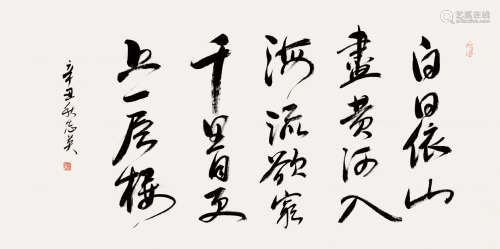 白日依山
盡黄河入
海流欲窮
千里目更
上一層樓
辛丑秋志英
艺狐在线